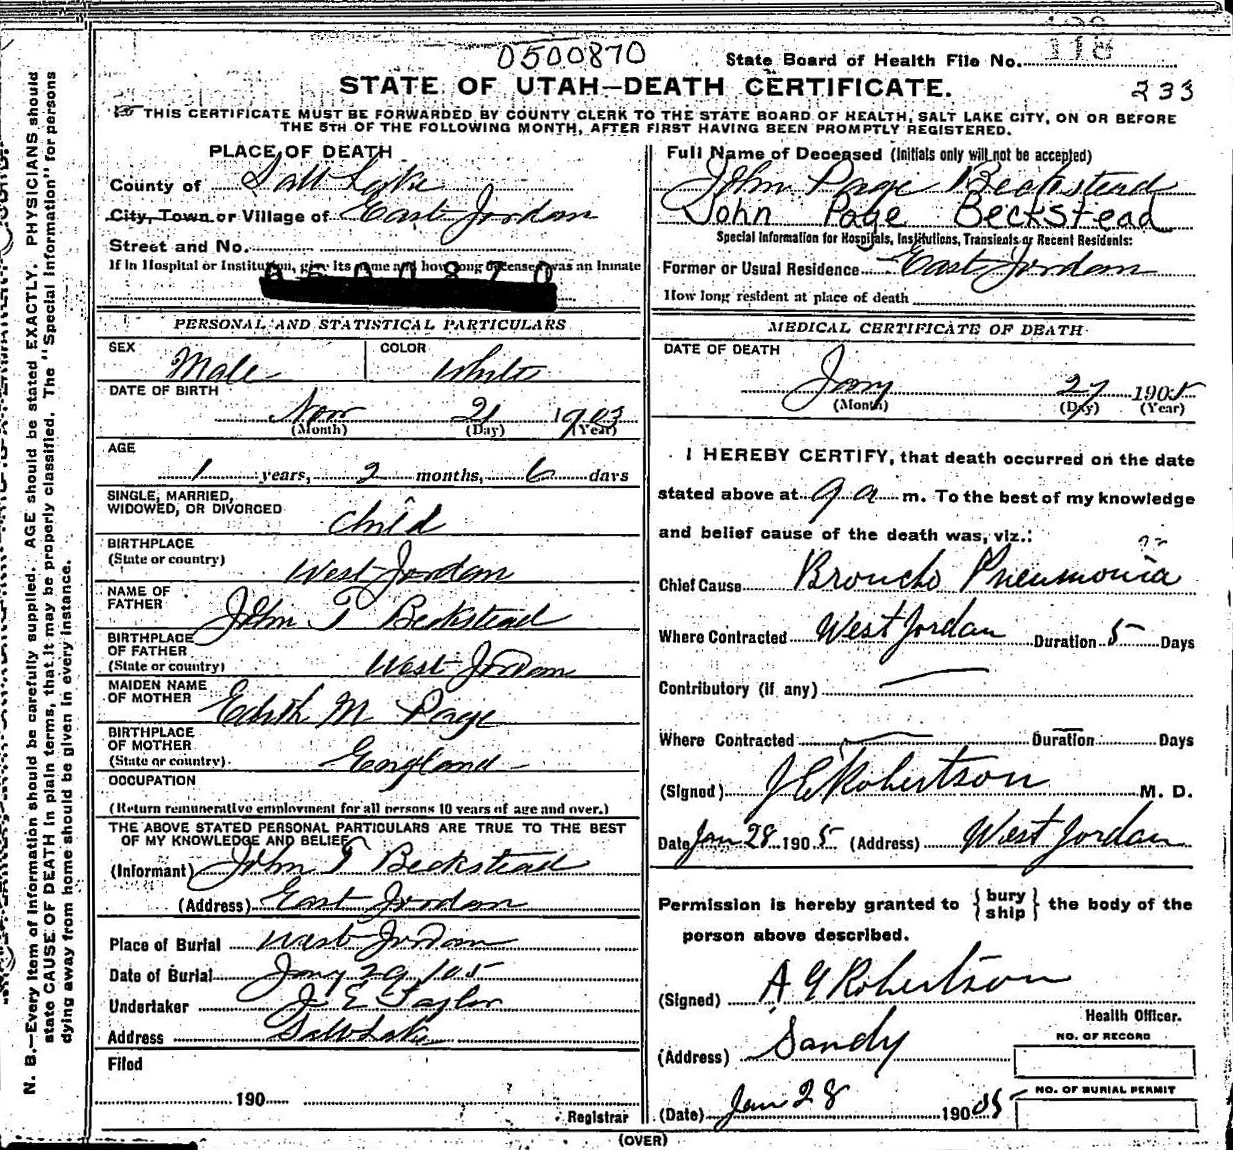 0500870
State Board of Health File No. 118
STATE OF UTAH—DEATH CERTIFICATE.
233
THIS CERTIFICATE MUST BE FORWARDED BY COUNTY CLERK TO THE STATE BOARD OF HEALTH, SALT LAKE CITY, ON OR BEFORE
THE 5TH OF THE FOLLOWING MONTH, AFTER FIRST HAVING BEEN PROMPTLY REGISTERED.
PLACE OF DEATH
County of Salt Lake
City, Town or Village of East Jordan
Street and No.
If in Hospital or Institution, give its name and how long deceased was an Inmate
0500870
PERSONAL AND STATISTICAL PARTICULARS
SEX Male
COLOR White
DATE OF BIRTH
Nov 21 1903
(Month) (Day) (Year)
AGE
1 years, 2 months, 6 days
SINGLE, MARRIED,
WIDOWED, OR DIVORCED child
BIRTHPLACE
(State or country) West Jordan
NAME OF
FATHER John T Beckstead
BIRTHPLACE
OF FATHER
(State or country) West Jordan
MAIDEN NAME
OF MOTHER Edith M Page
BIRTHPLACE
OF MOTHER
(State or country) England
OCCUPATION
(Return remunerative employment for all persons 10 years of age and over.)
THE ABOVE STATED PERSONAL PARTICULARS ARE TRUE TO THE BEST
OF MY KNOWLEDGE AND BELIEF
(Informant) John T Beckstead
(Address) East Jordan
Place of Burial West Jordan
Date of Burial Jany 29/05
Undertaker J E Taylor
Address Salt Lake
Filed
190
Registrar
Full Name of Deceased (Initials only will not be accepted)
John Page Beckstead
John Page Beckstead
Special Information for Hospitals, Institutions, Transients or Recent Residents:
Former or Usual Residence East Jordan
How long resident at place of death
MEDICAL CERTIFICATE OF DEATH
DATE OF DEATH
Jany 27 1905
(Month) (Day) (Year)
I HEREBY CERTIFY, that death occurred on the date
stated above at 9 a m. To the best of my knowledge
and belief cause of the death was, viz.:
Chief Cause Broncho Pneumonia
Where Contracted West Jordan Duration 5 Days
Contributory (if any)
Where Contracted Duration Days
(Signed) J E Robertson M. D.
Date Jan 28 1905 (Address) West Jordan
Permission is hereby granted to { bury
ship } the body of the
person above described.
(Signed) A G Robertson
Health Officer.
(Address) Sandy
NO. OF RECORD
(Date) Jan 28 1905
NO. OF BURIAL PERMIT
(OVER)
N. B.—Every item of information should be carefully supplied. AGE should be stated EXACTLY. PHYSICIANS should
state CAUSE OF DEATH in plain terms, that it may be properly classified. The "Special Information" for persons
dying away from home should be given in every instance.